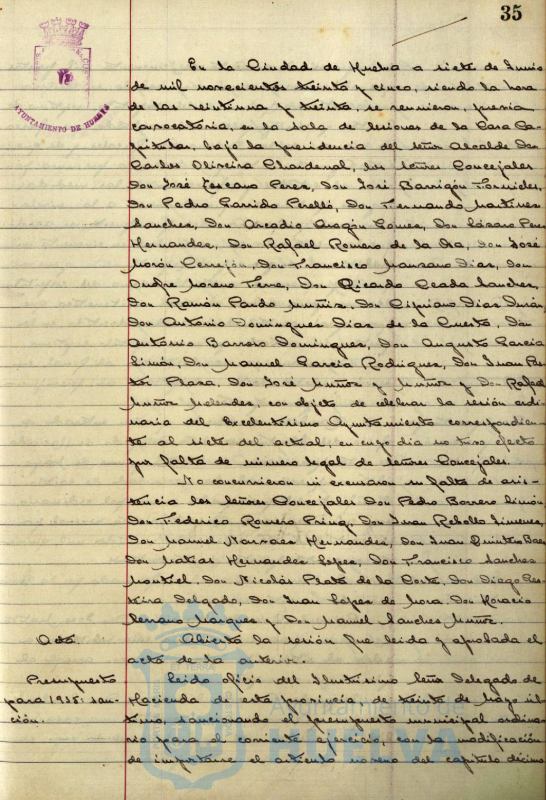 35
AYUNTAMIENTO DE HUELVA
En la Ciudad de Huelva a siete de Junio
de mil novecientos treinta y cinco, siendo la hora
de las veintiuna y treinta, se reunieron, previa
convocatoria, en la sala de sesiones de la Casa Ca-
pitular, bajo la presidencia del señor Alcalde Don
Carlos Oliveira Chardenal, los señores Concejales
Don José Toscano Perez, Don José Barrigón Fornieles,
Don Pedro Garrido Perelló, Don Fernando Martinez
Sanchez, Don Arcadio Aragón Gomez, Don Lázaro Perez
Hernandez, Don Rafael Romero de la Osa, Don José
Morón Cerrejón, Don Francisco Manzano Diaz, Don
Onofre Moreno Ferre, Don Ricardo Ceada Sanchez,
Don Ramón Pardo Muñiz, Don Cipriano Diaz Durán,
Don Antonio Dominguez Diaz de la Cuesta, Don
Antonio Barroso Dominguez, Don Augusto Garcia
Limón, Don Manuel Garcia Rodriguez, Don Juan Pas-
tor Plaza, Don José Muñoz y Muñoz y Don Rafael
Muñoz Melendez, con objeto de celebrar la sesión ordi-
naria del Excelentísimo Ayuntamiento correspondien-
te al siete del actual, en cuyo dia no tuvo efecto
por falta de número legal de señores Concejales.
No concurrieron ni excusaron su falta de asis-
tencia los señores Concejales Don Pedro Borrero Limón
Don Federico Romero Don Juan Rebollo Jimenez,
Don Manuel Narvaez Hernandez, Don Juan Quintero Baez
Don Matias Hernandez Lopez, Don Francisco Sanchez
Montiel, Don Nicolás Plata de la Corte, Don Diego
Delgado, Don Juan Lopez de Mora, Don Horacio
Serrano Marquez y Don Manuel Sanchez Muñoz.
Acta.
Abierta la sesión fue leida y aprobada el
acta de la anterior.
Presupuesto
para 1935: san-
ción.
Leido oficio del Ilustrísimo Señor Delegado de
Hacienda de esta provincia de treinta de Mayo úl-
timo, sancionando el presupuesto municipal ordina-
rio para el corriente ejercicio, con la modificación
de importarse el articulo noveno del capitulo décimo
Ayuntamiento de
HUELVA